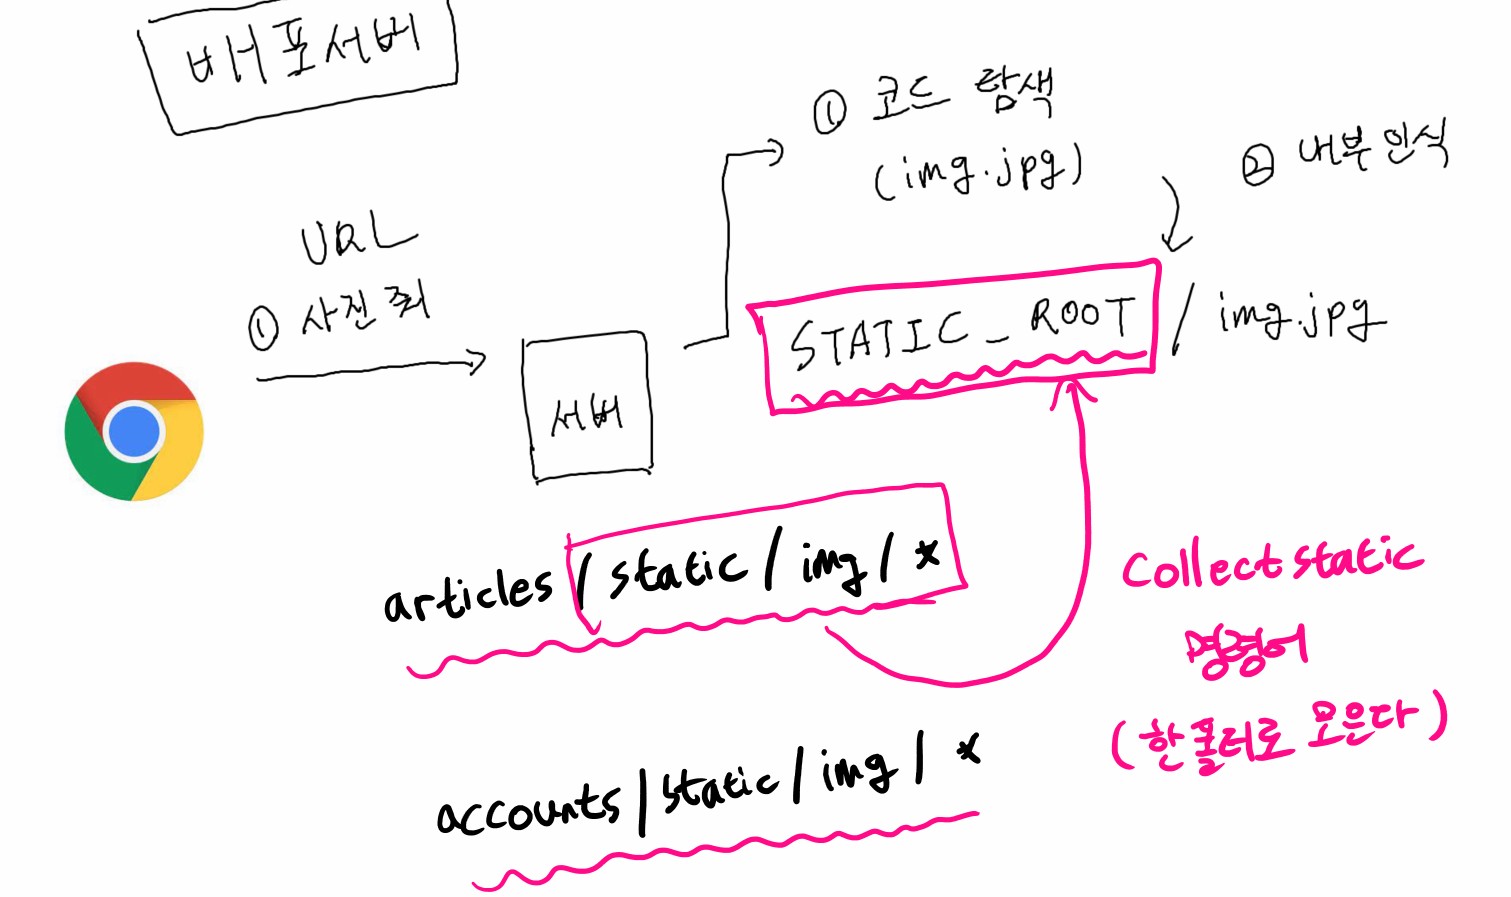 배포서버
URL
① 사진 줘
서버
① 코드 탐색
(img.jpg)
② 내부 인식
STATIC_ROOT / img.jpg
articles / static / img / *
accounts / static / img / *
Collectstatic
명령어
(한 폴더로 모은다)